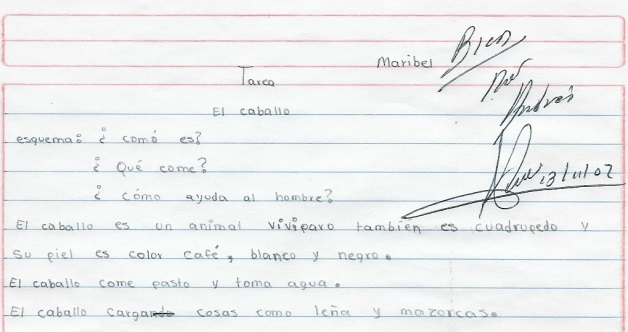 Maribel
Bien
Tarea
El caballo
esquema: ¿ comó es?
¿ Qué come?
¿ Cómo ayuda al hombre?
13/11/02
El caballo es un animal viviparo tambien es cuadrupedo y
su piel es color café, blanco y negro.
El caballo come pasto y toma agua.
El caballo carga cosas como leña y mazorcas.